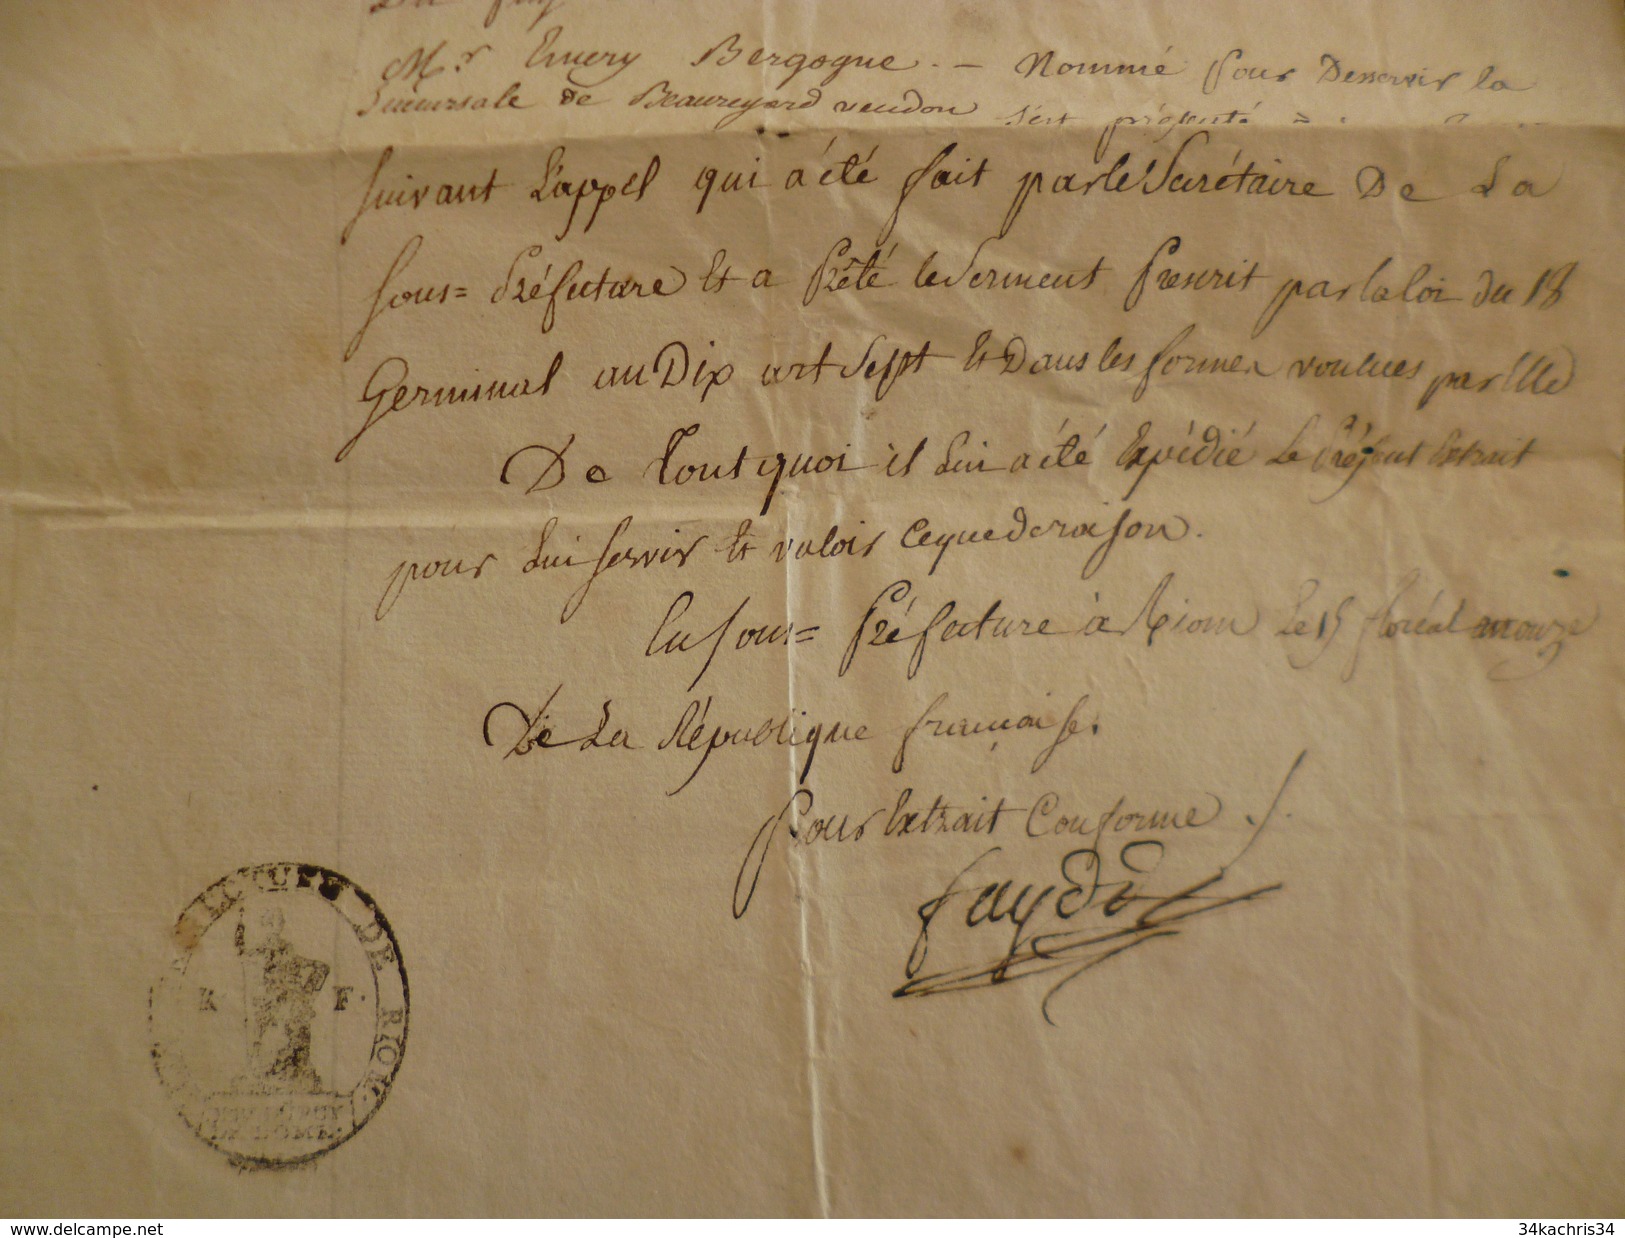 Mr. Emery Bergogne. — Nommé pour Desservir la
Succursale de Beauregard vendon s'est présenté =
suivant L'appel qui a été fait par le Secrétaire De La
sous = Préfecture Et a Prêté le Serment Prescrit par la loi du 18
Germinal an Dix art Sept Et Dans les formes voulues par Elle
De Tout quoi il Lui a été Expédié Le Présent Extrait
pour Lui servir Et valoir ce que de raison.
En sous = Préfecture à Riom Le 15 floréal an onze
De La République française.
Pour Extrait Conforme
faydi
DE RIOM.
R F.
DE DOME
www.delcampe.net
34kachris34